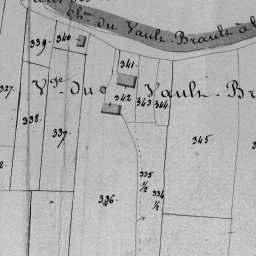 Ch.ⁿ du Vault-Brault à
340
339
341
V.ge du Vault-Br
342
343
344
338
337
345
336
335 ½
334 ½